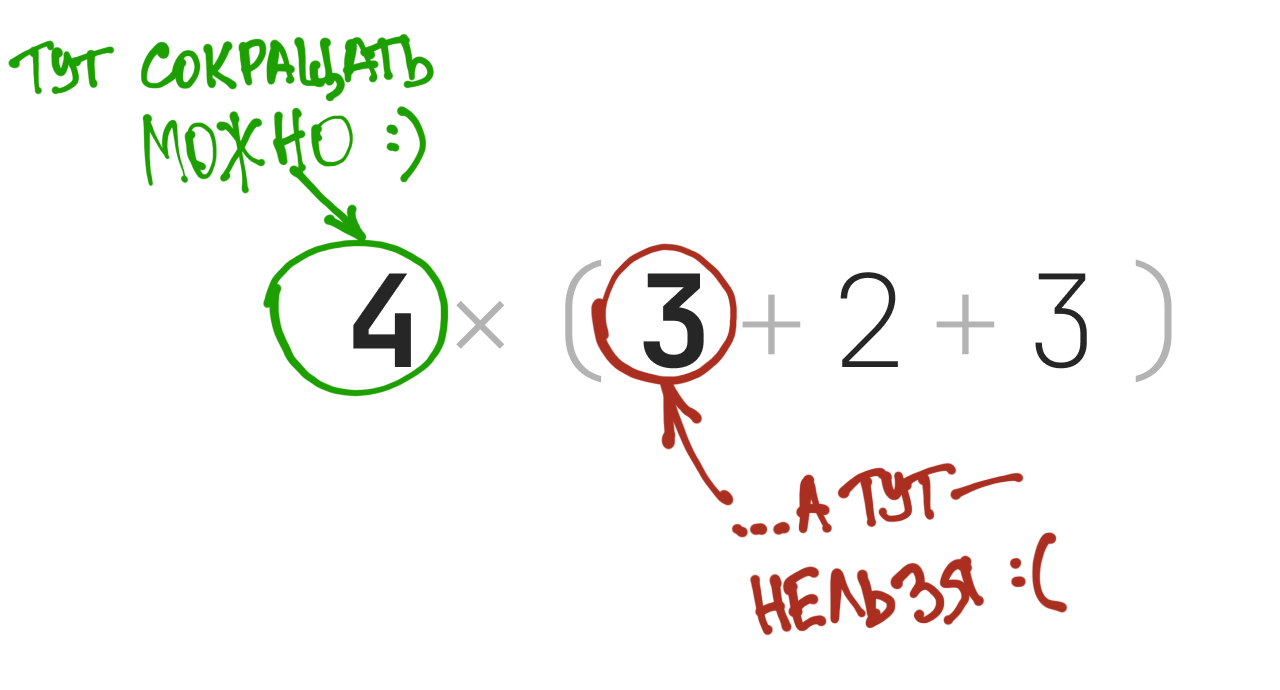 ТУТ СОКРАЩАТЬ
МОЖНО :)
4 × ( 3 + 2 + 3 )
...А ТУТ —
НЕЛЬЗЯ :(